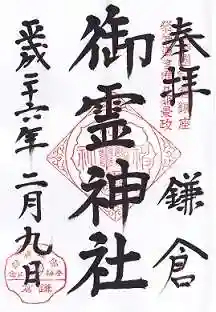 奉拝 鎌倉
御霊神社
平成二十六年二月九日